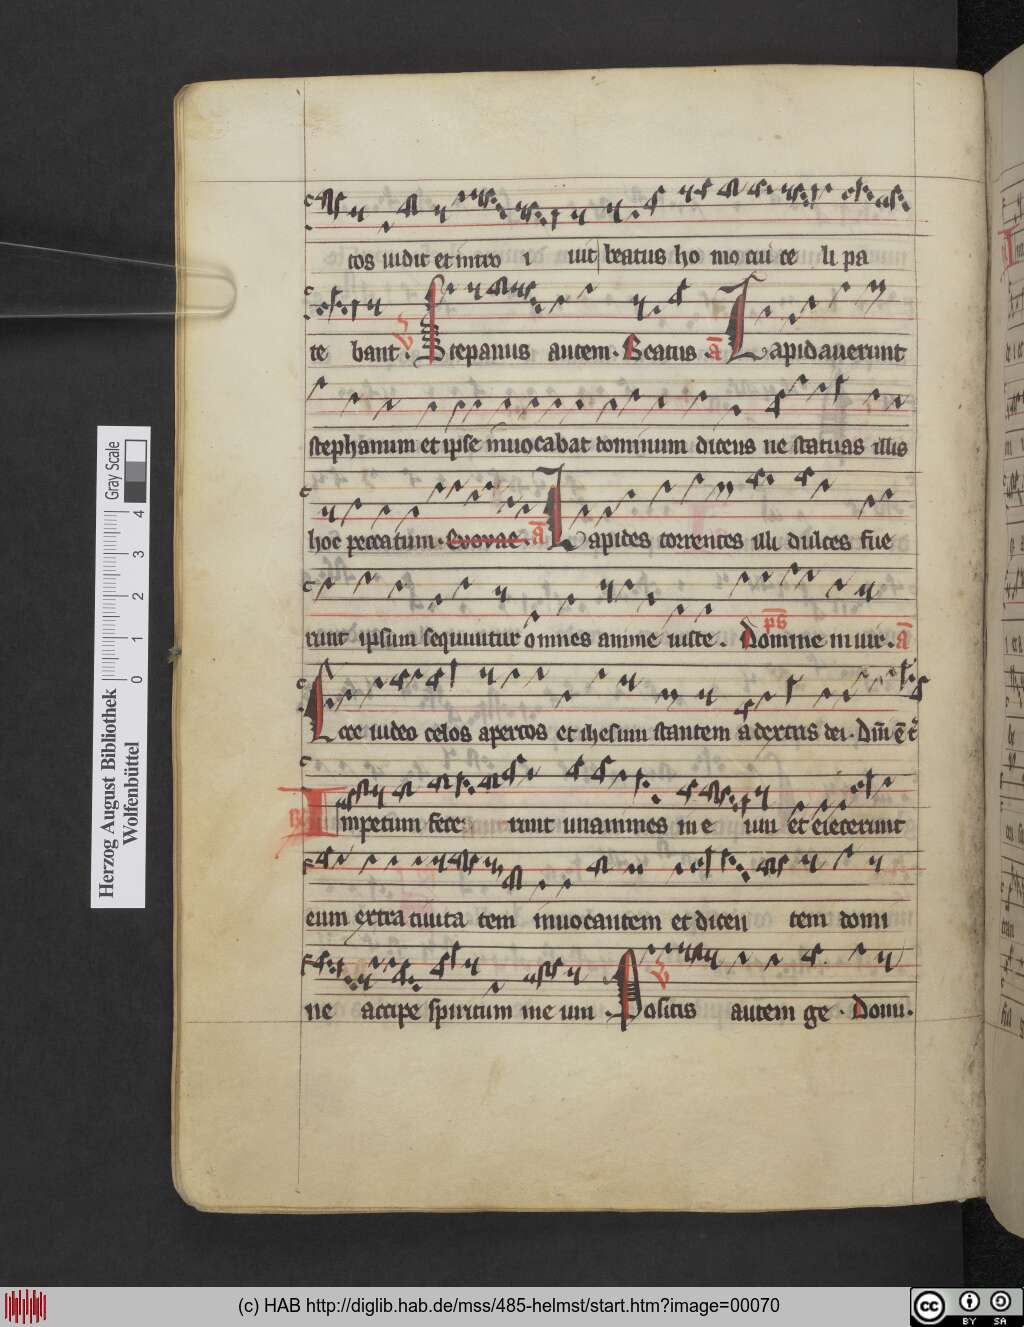 tos uidit et intro i uit beatus ho mo cui ce li pa
te bant. V Stepanus autem. Beatus. a Lapidauerunt
stephanum et ipse inuocabat dominum dicens ne statuas illis
hoc peccatum. Evovae. a Lapides torrentes illi dulces fue
runt ipsum sequuntur omnes anime iuste. ps Domine in uir. a
Ecce uideo celos apertos et ihesum stantem a dextris dei. Dn̄i ē t̄
R Impetum fece runt unanimes in e um et eiecerunt
eum extra ciuita tem inuocantem et dicen tem domi
ne accipe spiritum me um. V Positis autem ge. Domi.
Herzog August Bibliothek
Wolfenbüttel
0 1 2 3 4
Gray Scale
(c) HAB http://diglib.hab.de/mss/485-helmst/start.htm?image=00070
cc BY SA